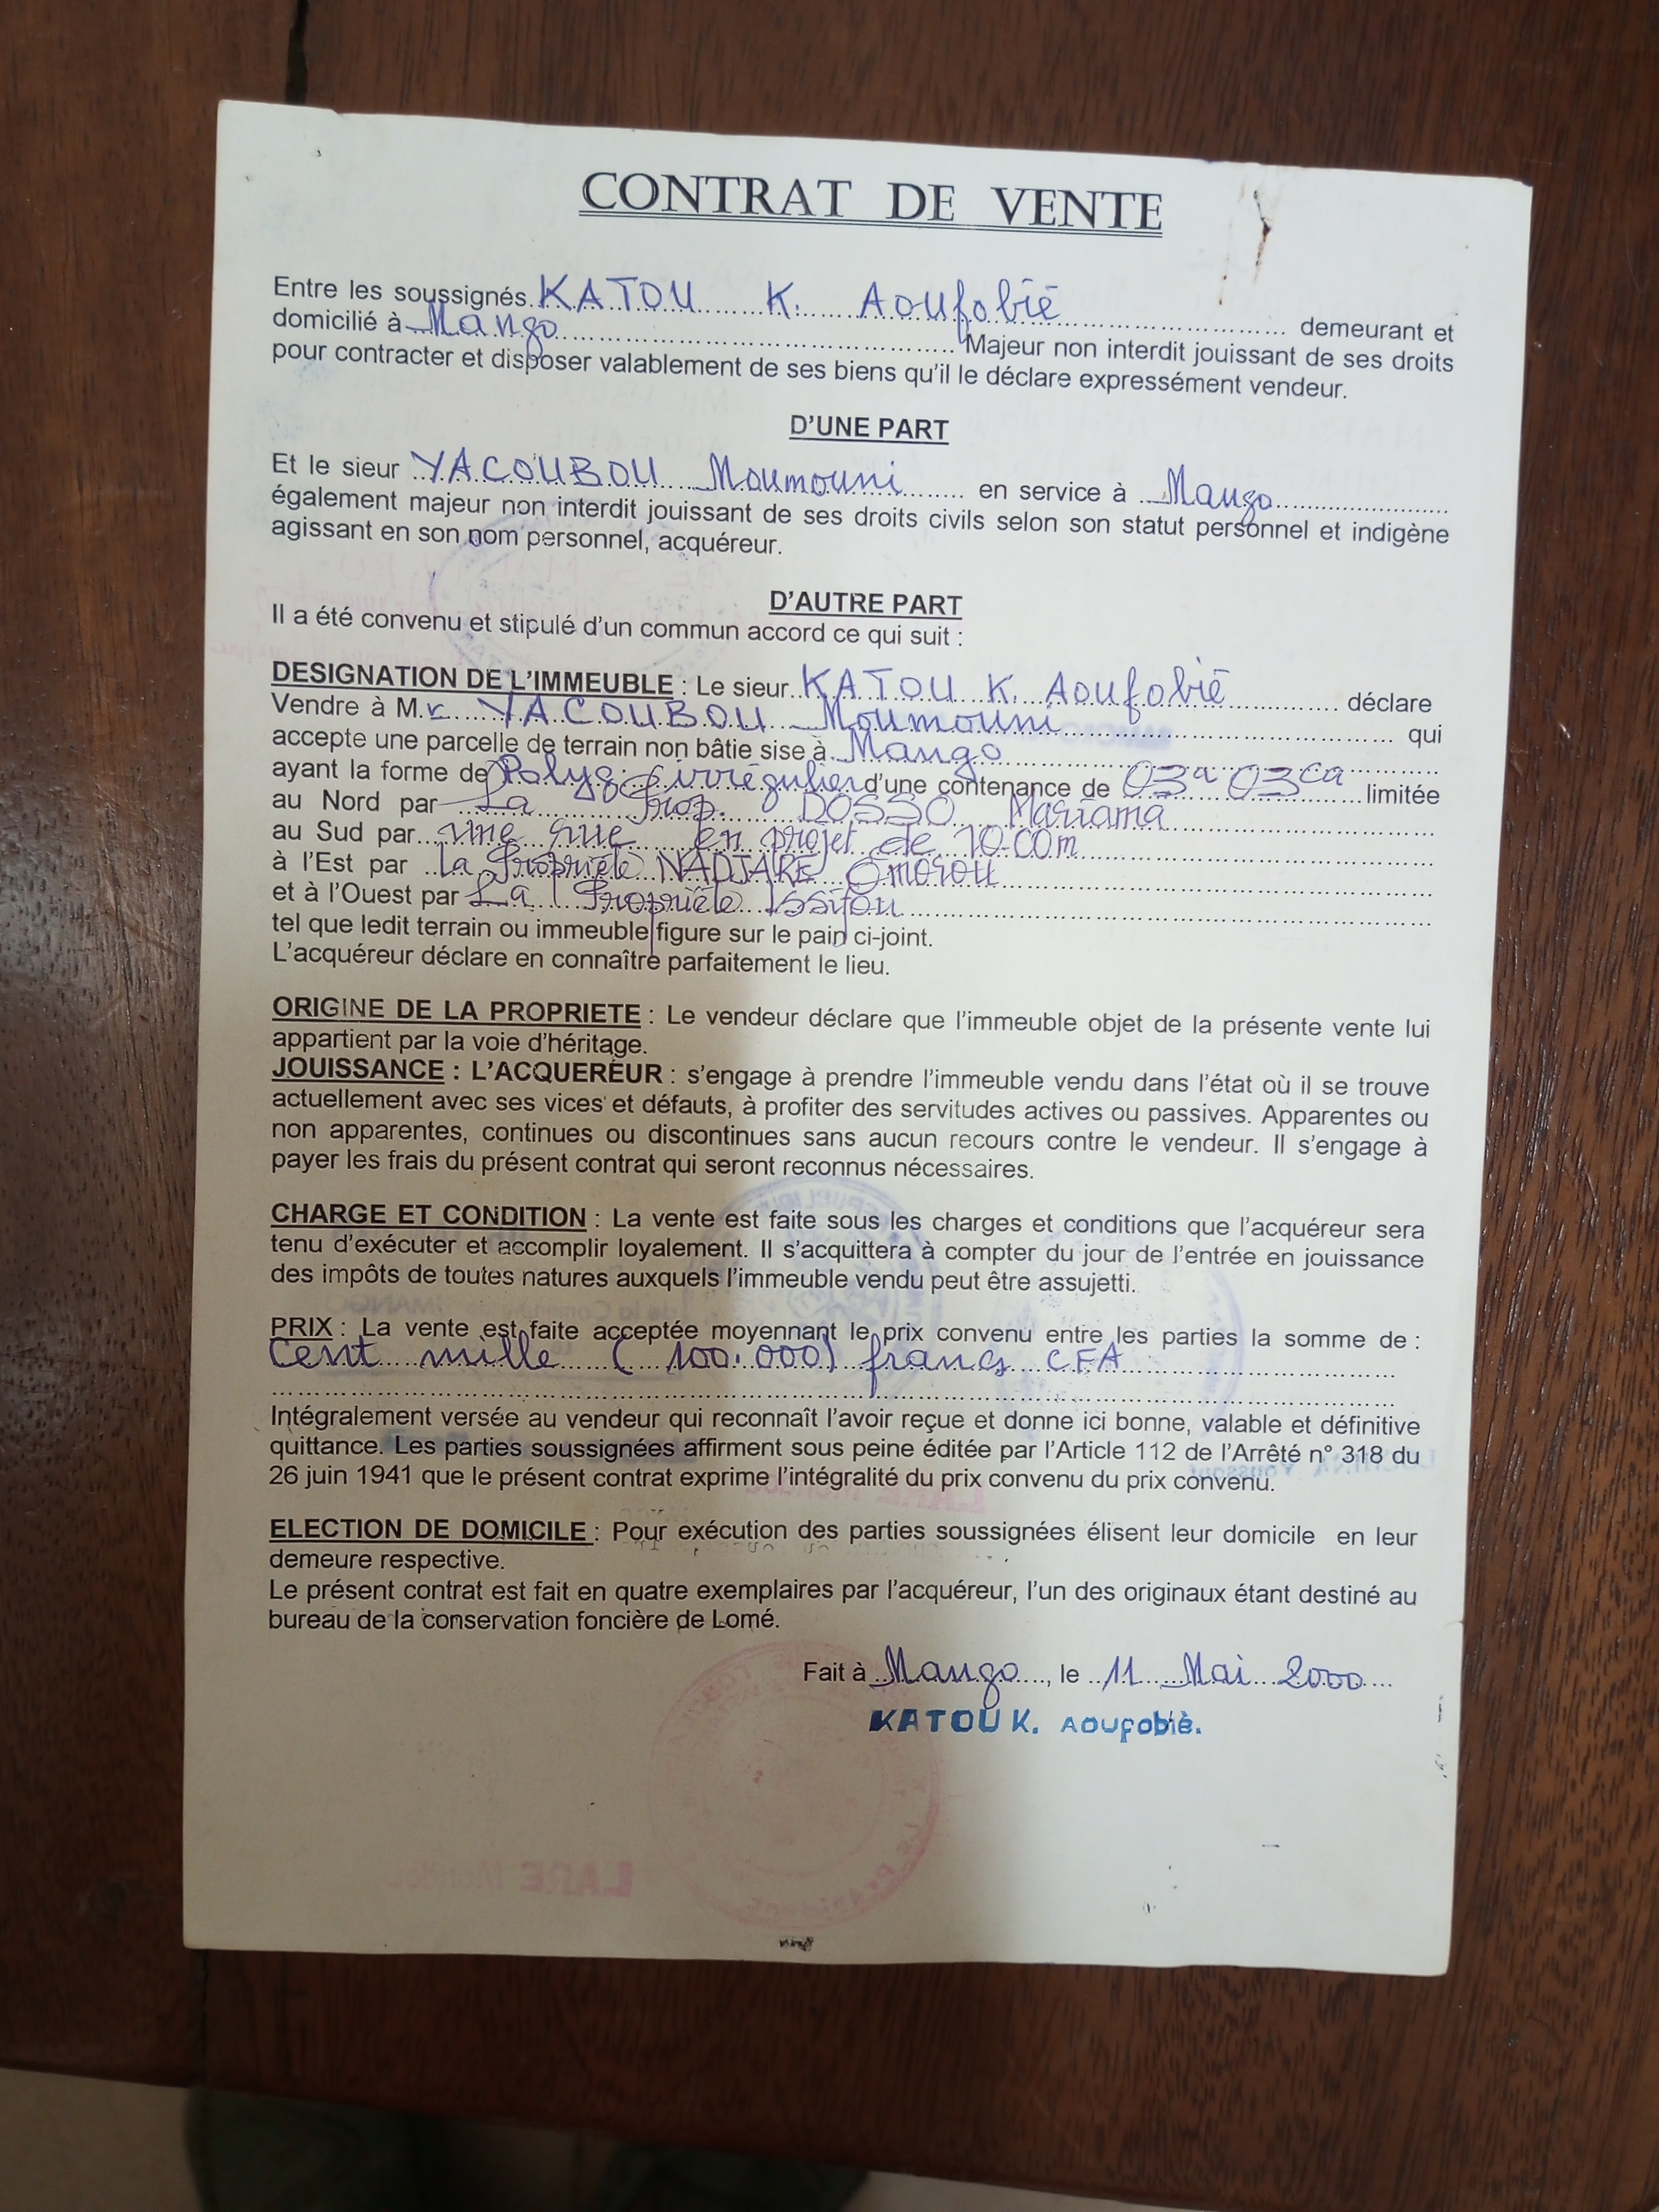 CONTRAT DE VENTE
Entre les soussignés KATOU K. Aoufobiè demeurant et
domicilié à Mango Majeur non interdit jouissant de ses droits
pour contracter et disposer valablement de ses biens qu'il le déclare expressément vendeur.
D'UNE PART
Et le sieur YACOUBOU Moumouni en service à Mango
également majeur non interdit jouissant de ses droits civils selon son statut personnel et indigène
agissant en son nom personnel, acquéreur.
D'AUTRE PART
Il a été convenu et stipulé d'un commun accord ce qui suit :
DESIGNATION DE L'IMMEUBLE : Le sieur KATOU K. Aoufobiè déclare
Vendre à M.r YACOUBOU Moumouni qui
accepte une parcelle de terrain non bâtie sise à Mango
ayant la forme de Polyg. irrégulier d'une contenance de 03a 03ca limitée
au Nord par La Prop. DOSSO Mariama
au Sud par une rue en projet de 10.00m
à l'Est par la Propriété NADJARE Omorou
et à l'Ouest par La Propriété Issifou
tel que ledit terrain ou immeuble figure sur le pain ci-joint.
L'acquéreur déclare en connaître parfaitement le lieu.
ORIGINE DE LA PROPRIETE : Le vendeur déclare que l'immeuble objet de la présente vente lui
appartient par la voie d'héritage.
JOUISSANCE : L'ACQUEREUR : s'engage à prendre l'immeuble vendu dans l'état où il se trouve
actuellement avec ses vices et défauts, à profiter des servitudes actives ou passives. Apparentes ou
non apparentes, continues ou discontinues sans aucun recours contre le vendeur. Il s'engage à
payer les frais du présent contrat qui seront reconnus nécessaires.
CHARGE ET CONDITION : La vente est faite sous les charges et conditions que l'acquéreur sera
tenu d'exécuter et accomplir loyalement. Il s'acquittera à compter du jour de l'entrée en jouissance
des impôts de toutes natures auxquels l'immeuble vendu peut être assujetti.
PRIX : La vente est faite acceptée moyennant le prix convenu entre les parties la somme de :
Cent mille (100.000) francs CFA
Intégralement versée au vendeur qui reconnaît l'avoir reçue et donne ici bonne, valable et définitive
quittance. Les parties soussignées affirment sous peine éditée par l'Article 112 de l'Arrêté n° 318 du
26 juin 1941 que le présent contrat exprime l'intégralité du prix convenu du prix convenu.
ELECTION DE DOMICILE : Pour exécution des parties soussignées élisent leur domicile en leur
demeure respective.
Le présent contrat est fait en quatre exemplaires par l'acquéreur, l'un des originaux étant destiné au
bureau de la conservation foncière de Lomé.
Fait à Mango, le 11 Mai 2000
KATOU K. Aoufobiè.
LARE